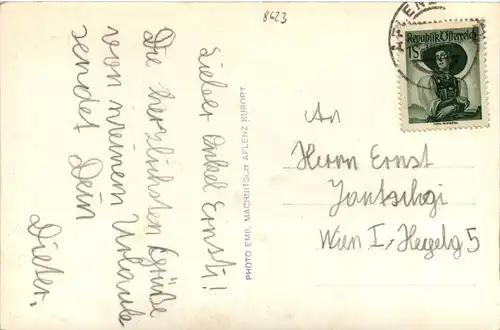 8623
Lieber Onkel Ernstj!
Die herzlichsten Grüße
von meinem Urlaub
sendet Dein
Dieter.
PHOTO EMIL MACHNITSCH AFLENZ KURORT
An
Herrn Ernst
Wien I, Hegelg 5
AFLENZ
Republik Österreich
1S